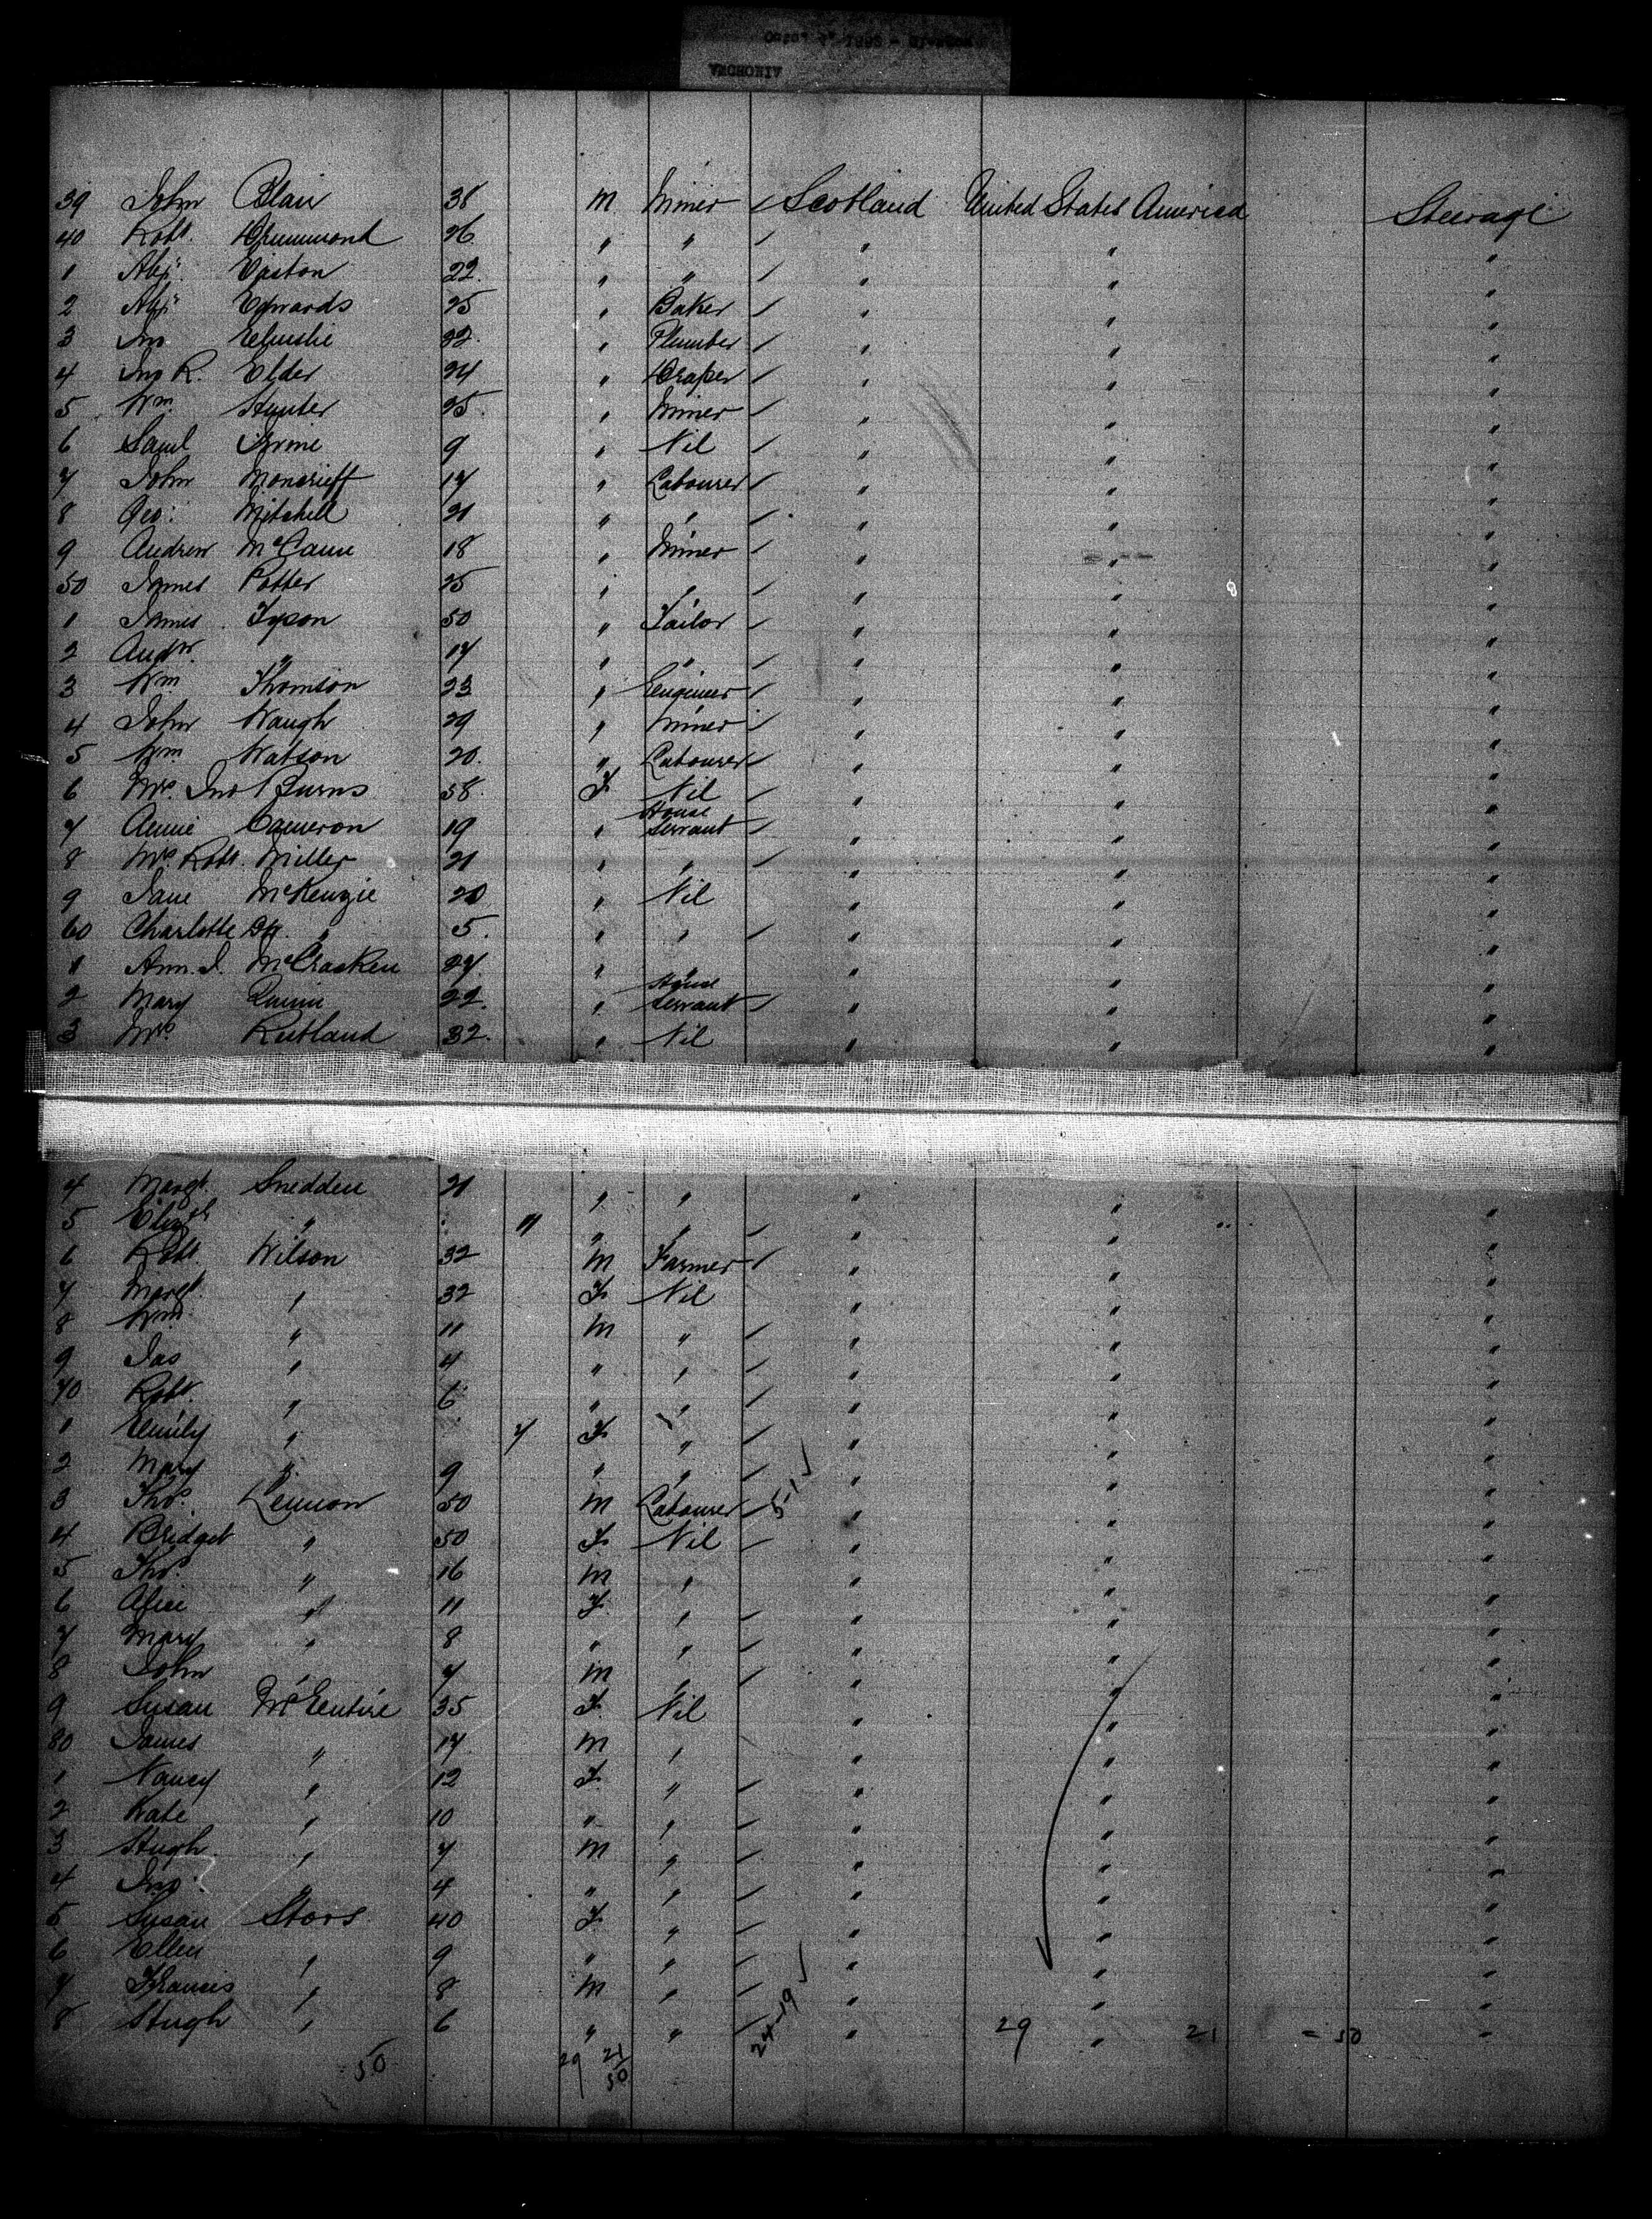 39 John Blair 38 M Miner Scotland United States America Steerage
40 Robt. Drummond 26 " " " " "
1 Alexr. Easton 22 " " " " "
2 Alexr. Edwards 25 " Baker " " "
3 Jno Elmslie 22 " Plumber " " "
4 Jno R. Elder 24 " Draper " " "
5 Wm Hunter 25 " Miner " " "
6 Saml 9 " Nil " " "
7 John Moncrieff 17 " Labourer " " "
8 Geo: Mitchell 21 " " " " "
9 Andrew McCann 18 " Miner " " "
50 James Potter 25 " " " " "
1 James Tyson 50 " Tailor " " "
2 Andw " 17 " " " " "
3 Wm Thomson 23 " Engineer " " "
4 John Waugh 29 " Miner " " "
5 Wm Watson 20 " Labourer " " "
6 Mrs. Jno Burns 38 F Nil " " "
7 Annie Cameron 19 " House Servant " " "
8 Mrs Robt. Miller 21 " " " " "
9 Jane McKenzie 20 " Nil " " "
60 Charlotte " 5 " " " " "
1 Ann. J. McCracken 27 " " " " "
2 Mary Quinn 22 " House Servant " " "
3 Mrs Rutland 32 " Nil " " "
4 Margt. Snedden 21 " " " " "
5 Elizth " 11 " " " " "
6 Robt. Wilson 32 M Farmer " " "
7 Margt. " 32 F Nil " " "
8 Wm " 11 M " " " "
9 Jas " 4 " " " " "
70 Robt. " 6 " " " " "
1 Emily " 7 F " " " "
2 Mary " 9 " " " " "
3 Thos. Lennon 50 M Labourer 5-1 " " "
4 Bridget " 50 F Nil " " "
5 Thos. " 16 M " " " "
6 Alice " 11 F " " " "
7 Mary " 8 " " " " "
8 John " 7 M " " " "
9 Susan McEntire 35 F Nil " " "
80 James " 17 M " " " "
1 Nancy " 12 F " " " "
2 Kate " 10 " " " " "
3 Hugh " 7 M " " " "
4 Jno " 4 " " " " "
5 Susan Stors 40 F " " " "
6 Ellen " 9 " " " " "
7 Francis " 8 M " " " "
8 Hugh " 6 " " 24-19 " 29 " 21 = 50 "
50 29 21
50